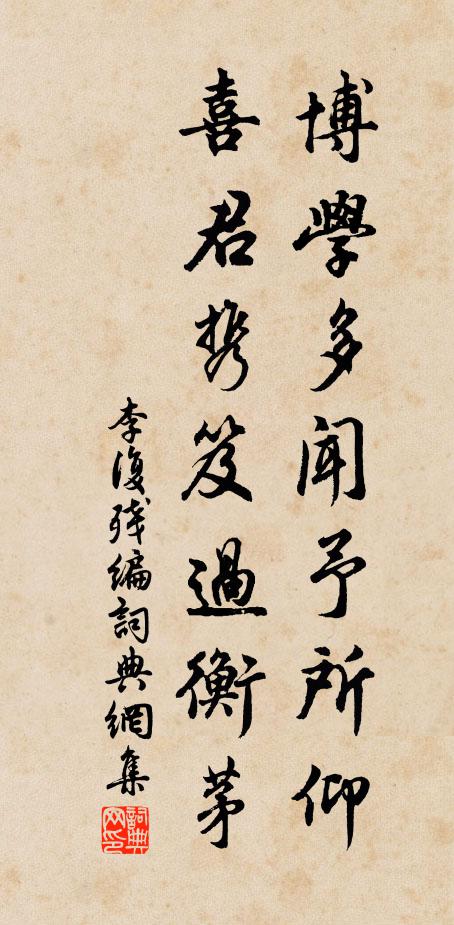 博學多聞予所仰
喜君携笈過衡茅
李復殘編詞典網集
詞典網印